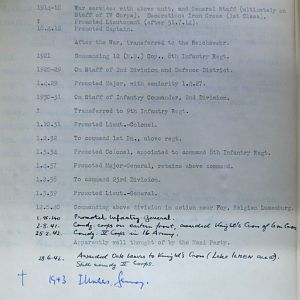 1914-18 War services with above unit, and General Staff (ultimately on
Staff of IV Corps). Decoration: Iron Cross (1st Class).
? Promoted Lieutenant (after 31.7.14).
18.4.18 Promoted Captain.
After the War, transferred to the Reichswehr.
1921 Commanding 12 (M.G.) Coy., 8th Infantry Regt.
1925-29 On Staff of 2nd Division and Defence District.
1.4.29 Promoted Major, with seniority 1.4.27.
1930-31 On Staff of Infantry Commander, 2nd Division.
Transferred to 9th Infantry Regt.
1.10.31 Promoted Lieut.-Colonel.
1.2.32 To command 1st Bn., above regt.
1.2.34 Promoted Colonel, appointed to command 8th Infantry Regt.
1.4.37 Promoted Major-General, retains above command.
To command 23rd Division.
1.3.39 Promoted Lieut.-General.
12.5.40 Commanding above division in action near Foy, Belgian Luxemburg.
1.8.40 Promoted Infantry General.
2.8.41. Comdg. corps on eastern front, awarded Knight's Cross of Iron Cross
Comdg. II Corps in 16 Army.
Apparently well thought of by the Nazi Party.
28.6.42. Awarded Oak leaves to Knight's Cross (Lake ILMEN area).
Still comdg II Corps.
† 1943